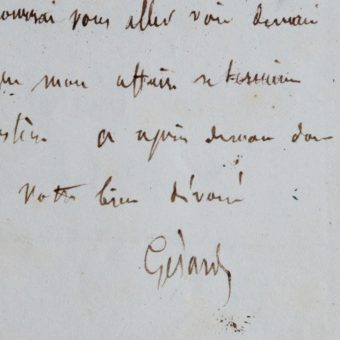 pourrai vous aller voir demain
mon affaire se termine
a après demain donc
Votre bien dévoué
Gérard